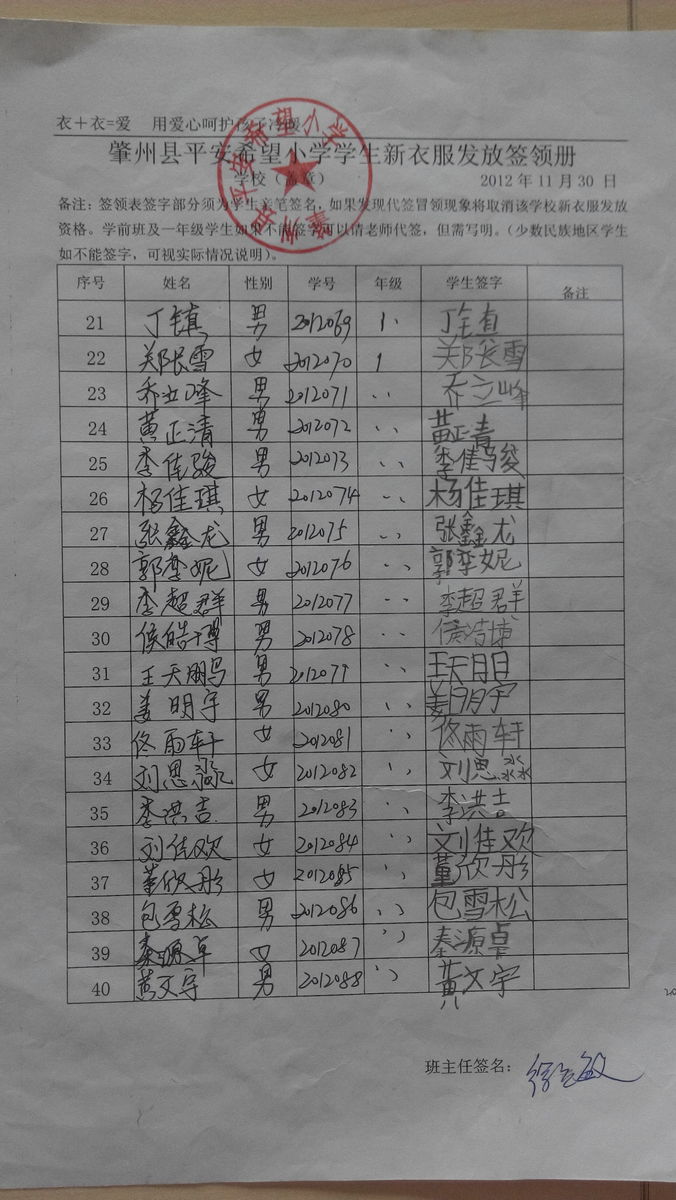 衣＋衣=爱 用爱心呵护孩子冷暖
肇州县平安希望小学学生新衣服发放签领册
学校（盖章） 2012 年 11 月 30 日
肇州县平安希望小学
备注：签领表签字部分须为学生亲笔签名，如果发现代签冒领现象将取消该学校新衣服发放
资格。学前班及一年级学生如果不能签字可以请老师代签，但需写明。（少数民族地区学生
如不能签字，可视实际情况说明）。
序号 姓名 性别 学号 年级 学生签字 备注
21 丁镇 男 2012069 1 丁镇
22 郑长雪 女 2012070 1 郑长雪
23 乔立峰 男 2012071 、、 乔立峰
24 黄正清 男 2012072 、、 黄正青
25 李佳骏 男 2012073 、、 李佳骏
26 杨佳琪 女 2012074 、、 杨佳琪
27 张鑫龙 男 2012075 、、 张鑫龙
28 郭李妮 女 2012076 、、 郭李妮
29 李超群 男 2012077 、、 李超群
30 侯皓博 男 2012078 、、 侯浩博
31 王天鹏 男 2012079 、、 王天月日
32 姜明宇 男 2012080 、、 姜明宇
33 佟雨轩 女 2012081 、、 佟雨轩
34 刘思淼 女 2012082 、、 刘思淼
35 李洪吉 男 2012083 、、 李洪吉
36 刘佳欢 女 2012084 、、 刘佳欢
37 董欣彤 女 2012085 、、 董欣彤
38 包雪松 男 2012086 、、 包雪松
39 秦源卓 女 2012087 、、 秦源卓
40 黄文宇 男 2012088 、、 黄文宇
班主任签名：